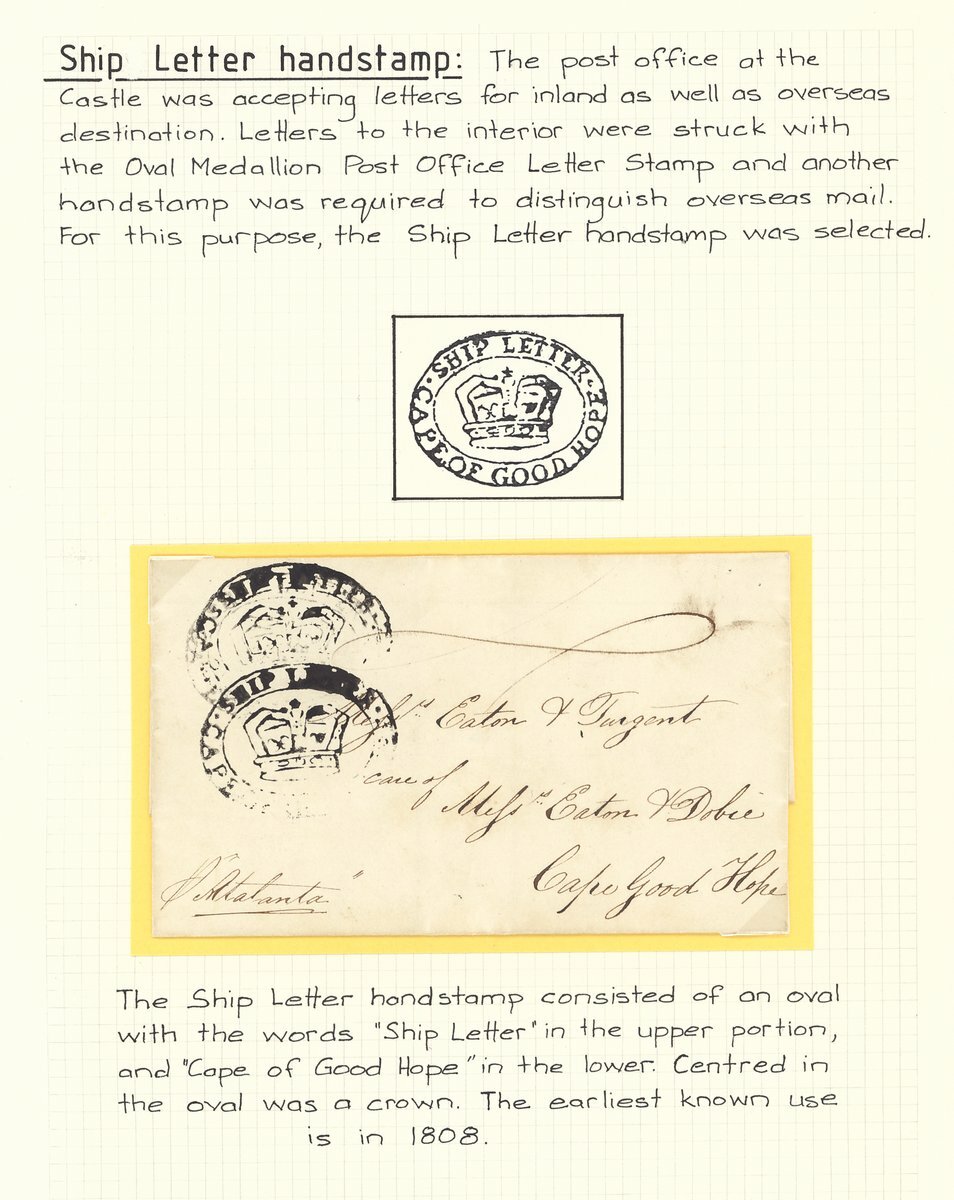 Ship Letter handstamp: The post office at the
Castle was accepting letters for inland as well as overseas
destination. Letters to the interior were struck with
the Oval Medallion Post Office Letter Stamp and another
handstamp was required to distinguish overseas mail.
For this purpose, the Ship Letter handstamp was selected.
· SHIP LETTER ·
CAPE OF GOOD HOPE
SHIP
CAPE
Messrs Eaton & Turgent
care of
Messrs Eaton & Dobie
Cape Good Hope
"Atalanta"
The Ship Letter handstamp consisted of an oval
with the words "Ship Letter" in the upper portion,
and "Cape of Good Hope" in the lower. Centred in
the oval was a crown. The earliest known use
is in 1808.